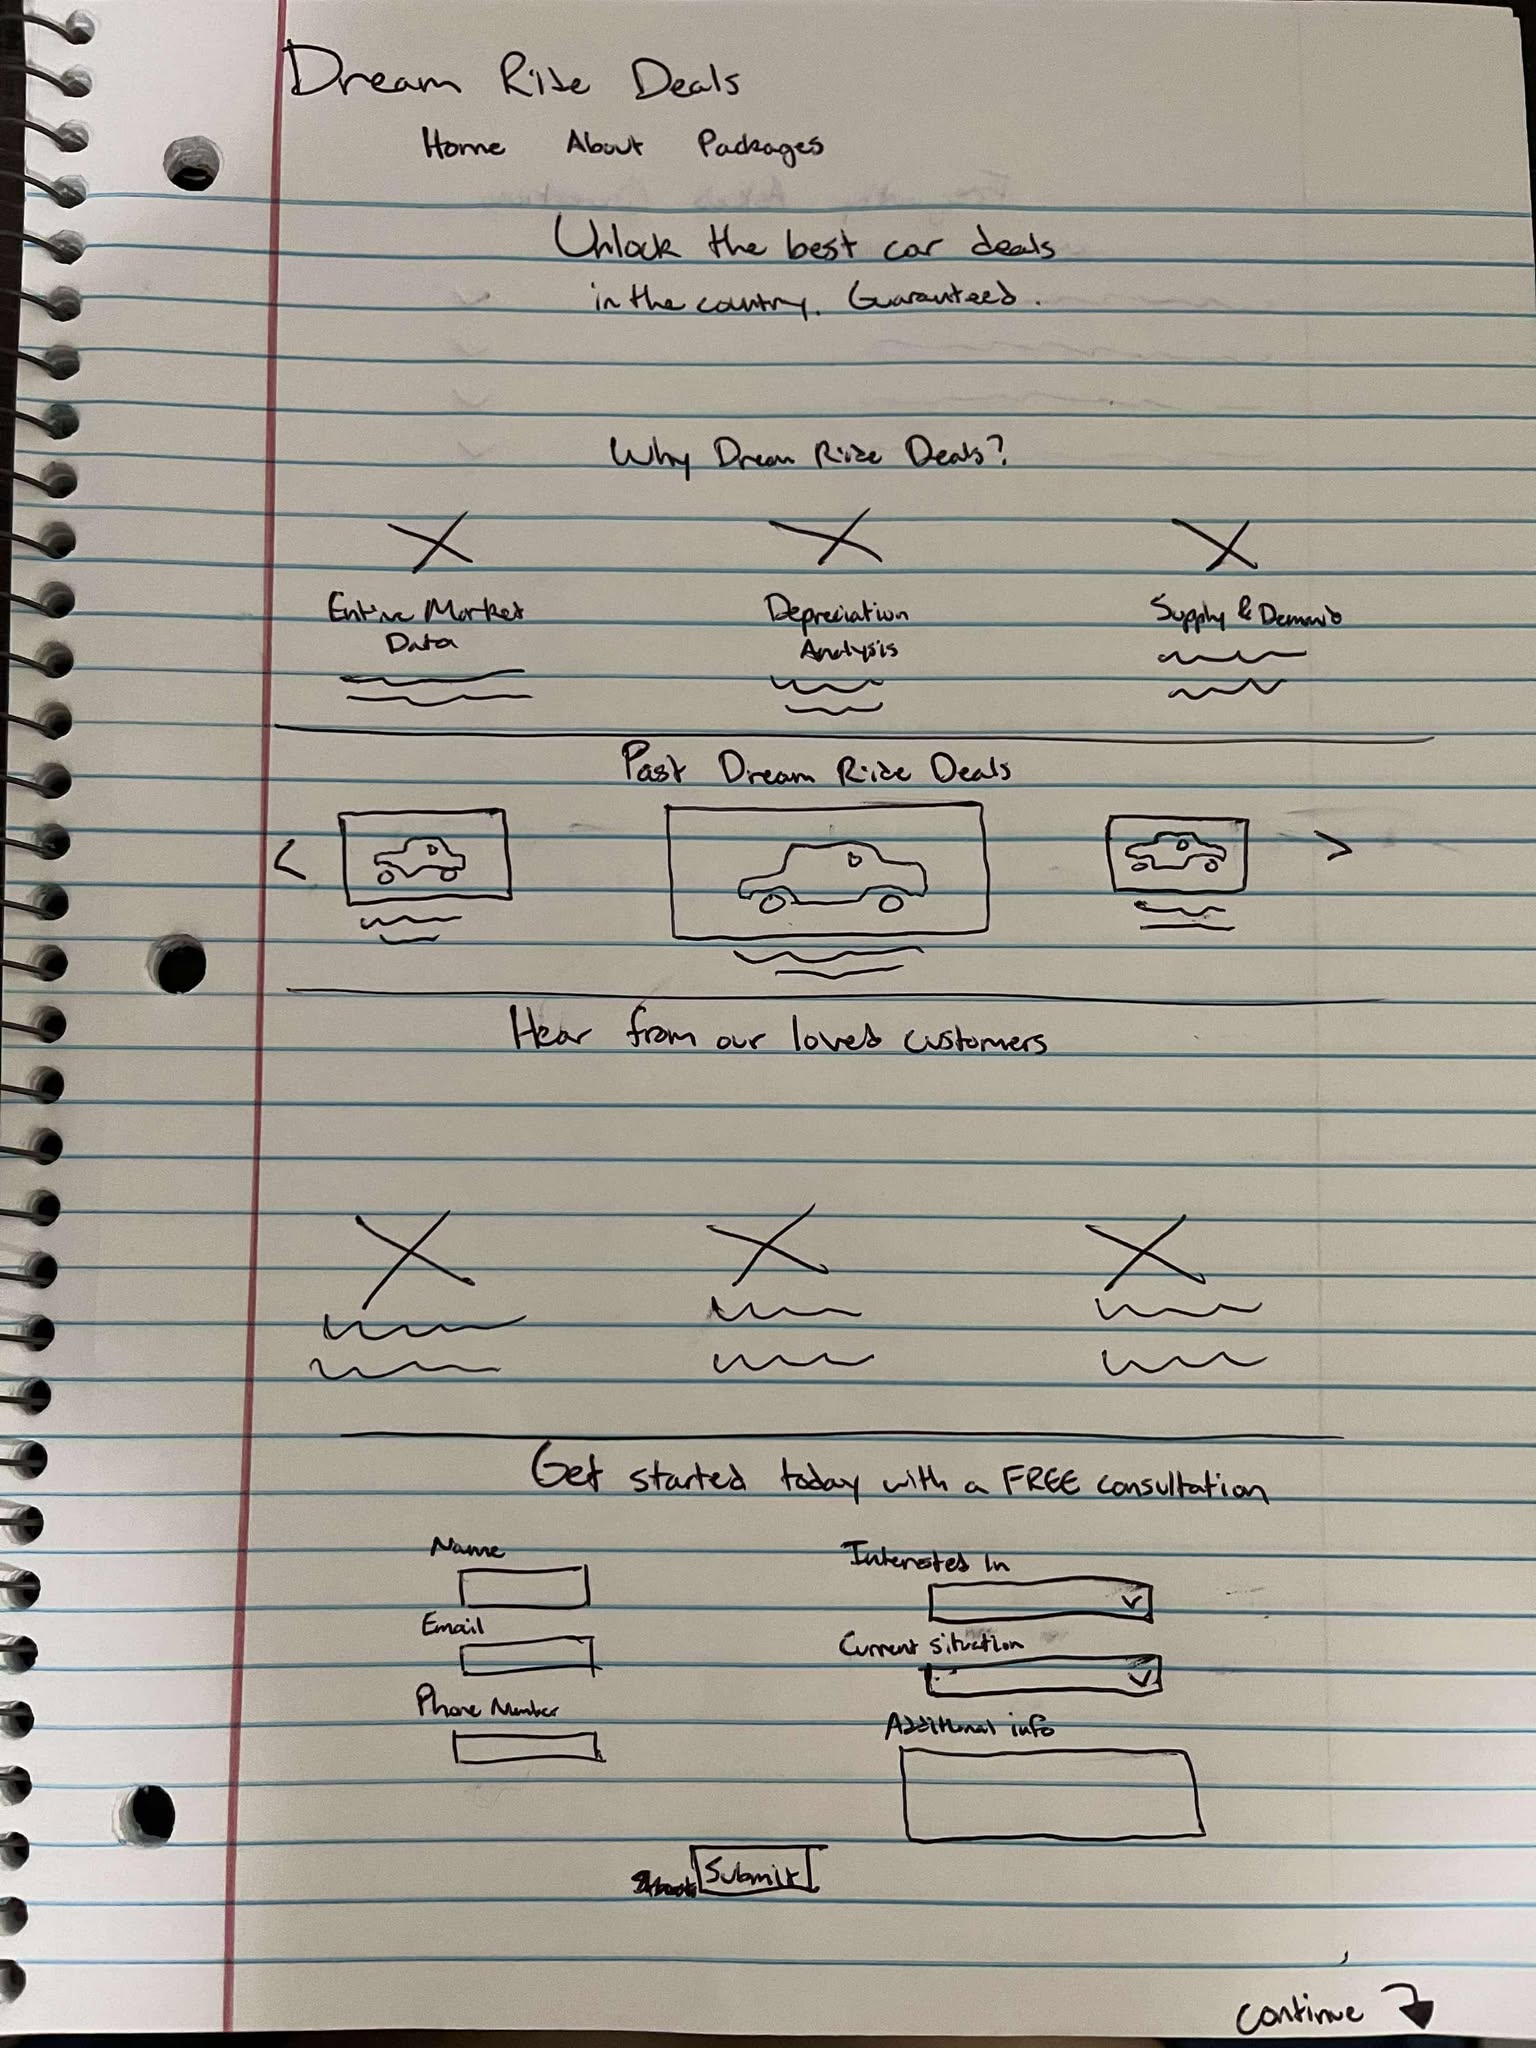 Dream Ride Deals
Home About Packages
Unlock the best car deals
in the country. Guaranteed.
Why Dream Ride Deals?
Entire Market
Data
Depreciation
Analysis
Supply & Demand
Past Dream Ride Deals
< >
Hear from our loved customers
Get started today with a FREE consultation
Name
Email
Phone Number
Interested In
Current situation
Additional info
Submit
continue